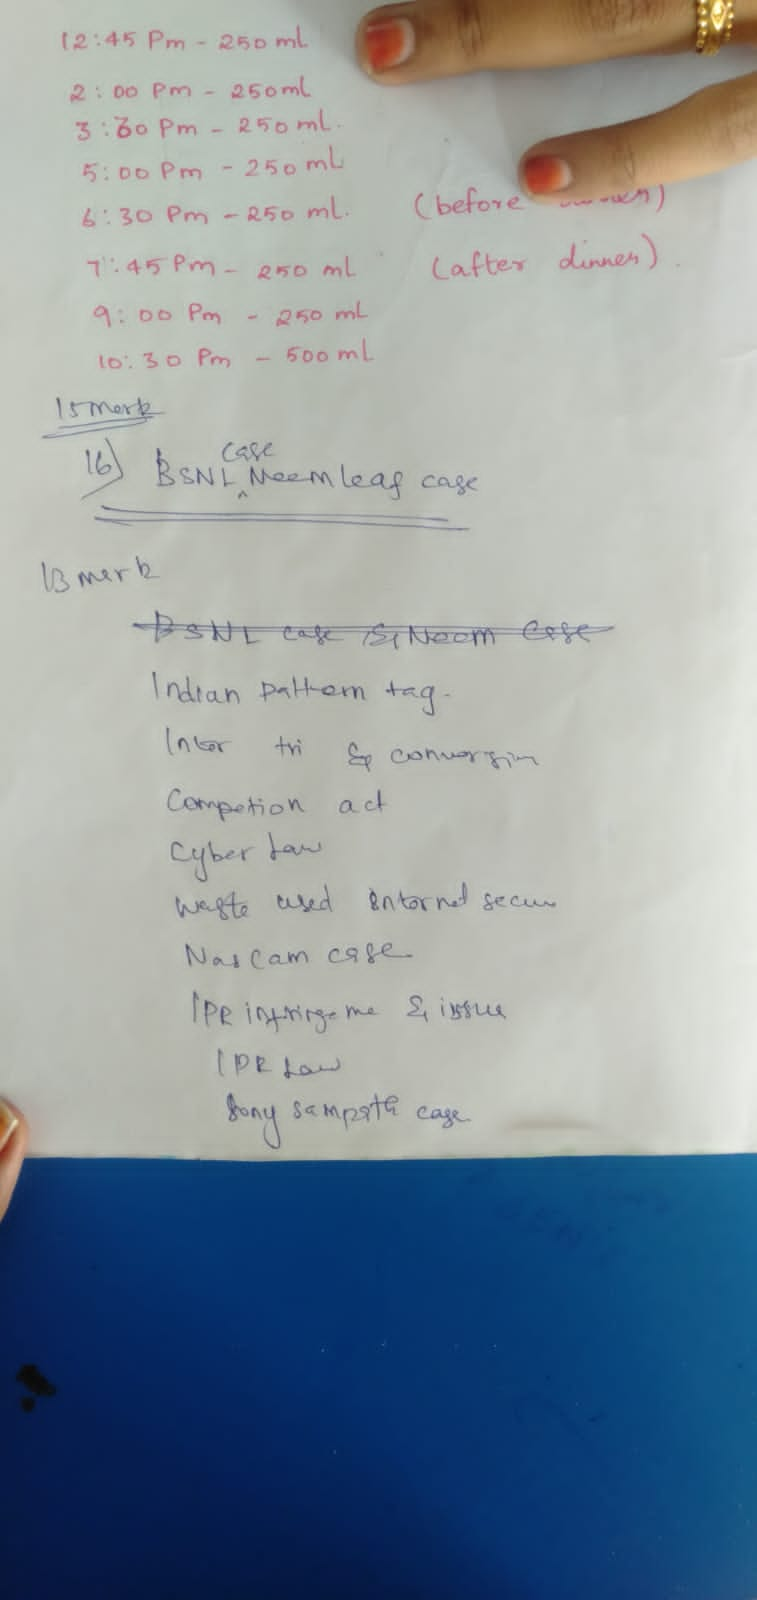 12:45 Pm - 250 ml
2:00 Pm - 250ml
3:30 Pm - 250 ml.
5:00 Pm - 250 ml
6:30 Pm - 250 ml. (before
7:45 Pm - 250 ml (after dinner).
9:00 Pm - 250 ml
10:30 Pm - 500 ml
15 merk
16) BSNL case Neem leaf case
13 merk
BSNL case & Neem case
Indian pattern tag.
Inter tri & conversin
Competion act
Cyber Law
waste used internet secu
Nascam case
IPR infringeme & issue
IPR Law
Sony sampath case